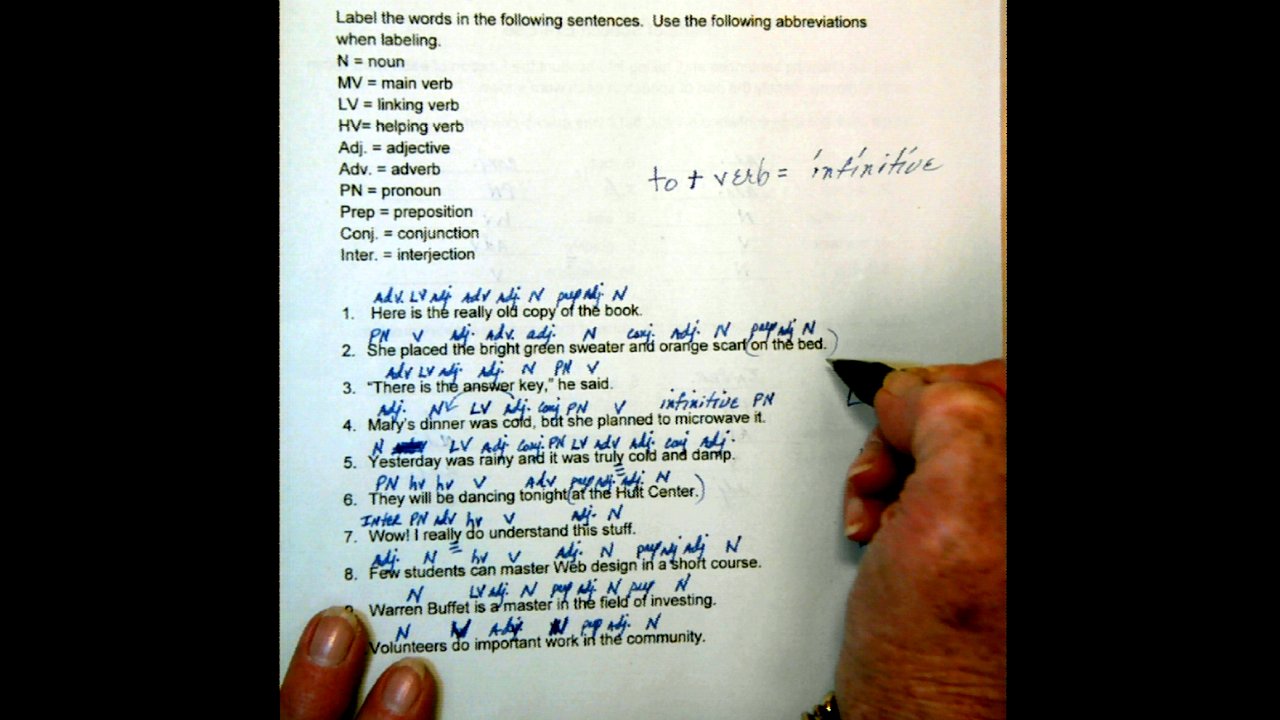 Label the words in the following sentences. Use the following abbreviations
when labeling.
N = noun
MV = main verb
LV = linking verb
HV= helping verb
Adj. = adjective
Adv. = adverb
to + verb = infinitive
PN = pronoun
Prep = preposition
Conj. = conjunction
Inter. = interjection
Adv. LV adj adv adj. N prep adj. N
1. Here is the really old copy of the book.
PN V adj. adv. adj. N conj. Adj. N prep adj N
2. She placed the bright green sweater and orange scarf (on the bed.)
adv LV adj. adj. N PN V
3. “There is the answer key,” he said.
adj. N LV adj. conj PN V infinitive PN
4. Mary's dinner was cold, but she planned to microwave it.
N LV Adj conj. PN LV adv adj. conj adj.
5. Yesterday was rainy and it was truly cold and damp.
PN hv hv V Adv prep adj. adj. N
6. They will be dancing tonight (at the Hult Center.)
Inter PN adv hv V adj. N
7. Wow! I really do understand this stuff.
Adj. N hv V Adj. N prep adj adj N
8. Few students can master Web design in a short course.
N LV adj. N prep adj. N prep N
Warren Buffet is a master in the field of investing.
N Adj. N prep adj. N
Volunteers do important work in the community.